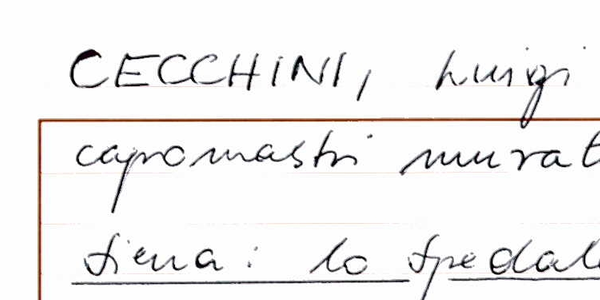 CECCHINI, Luigi
capomastri murat
Siena: lo Spedale